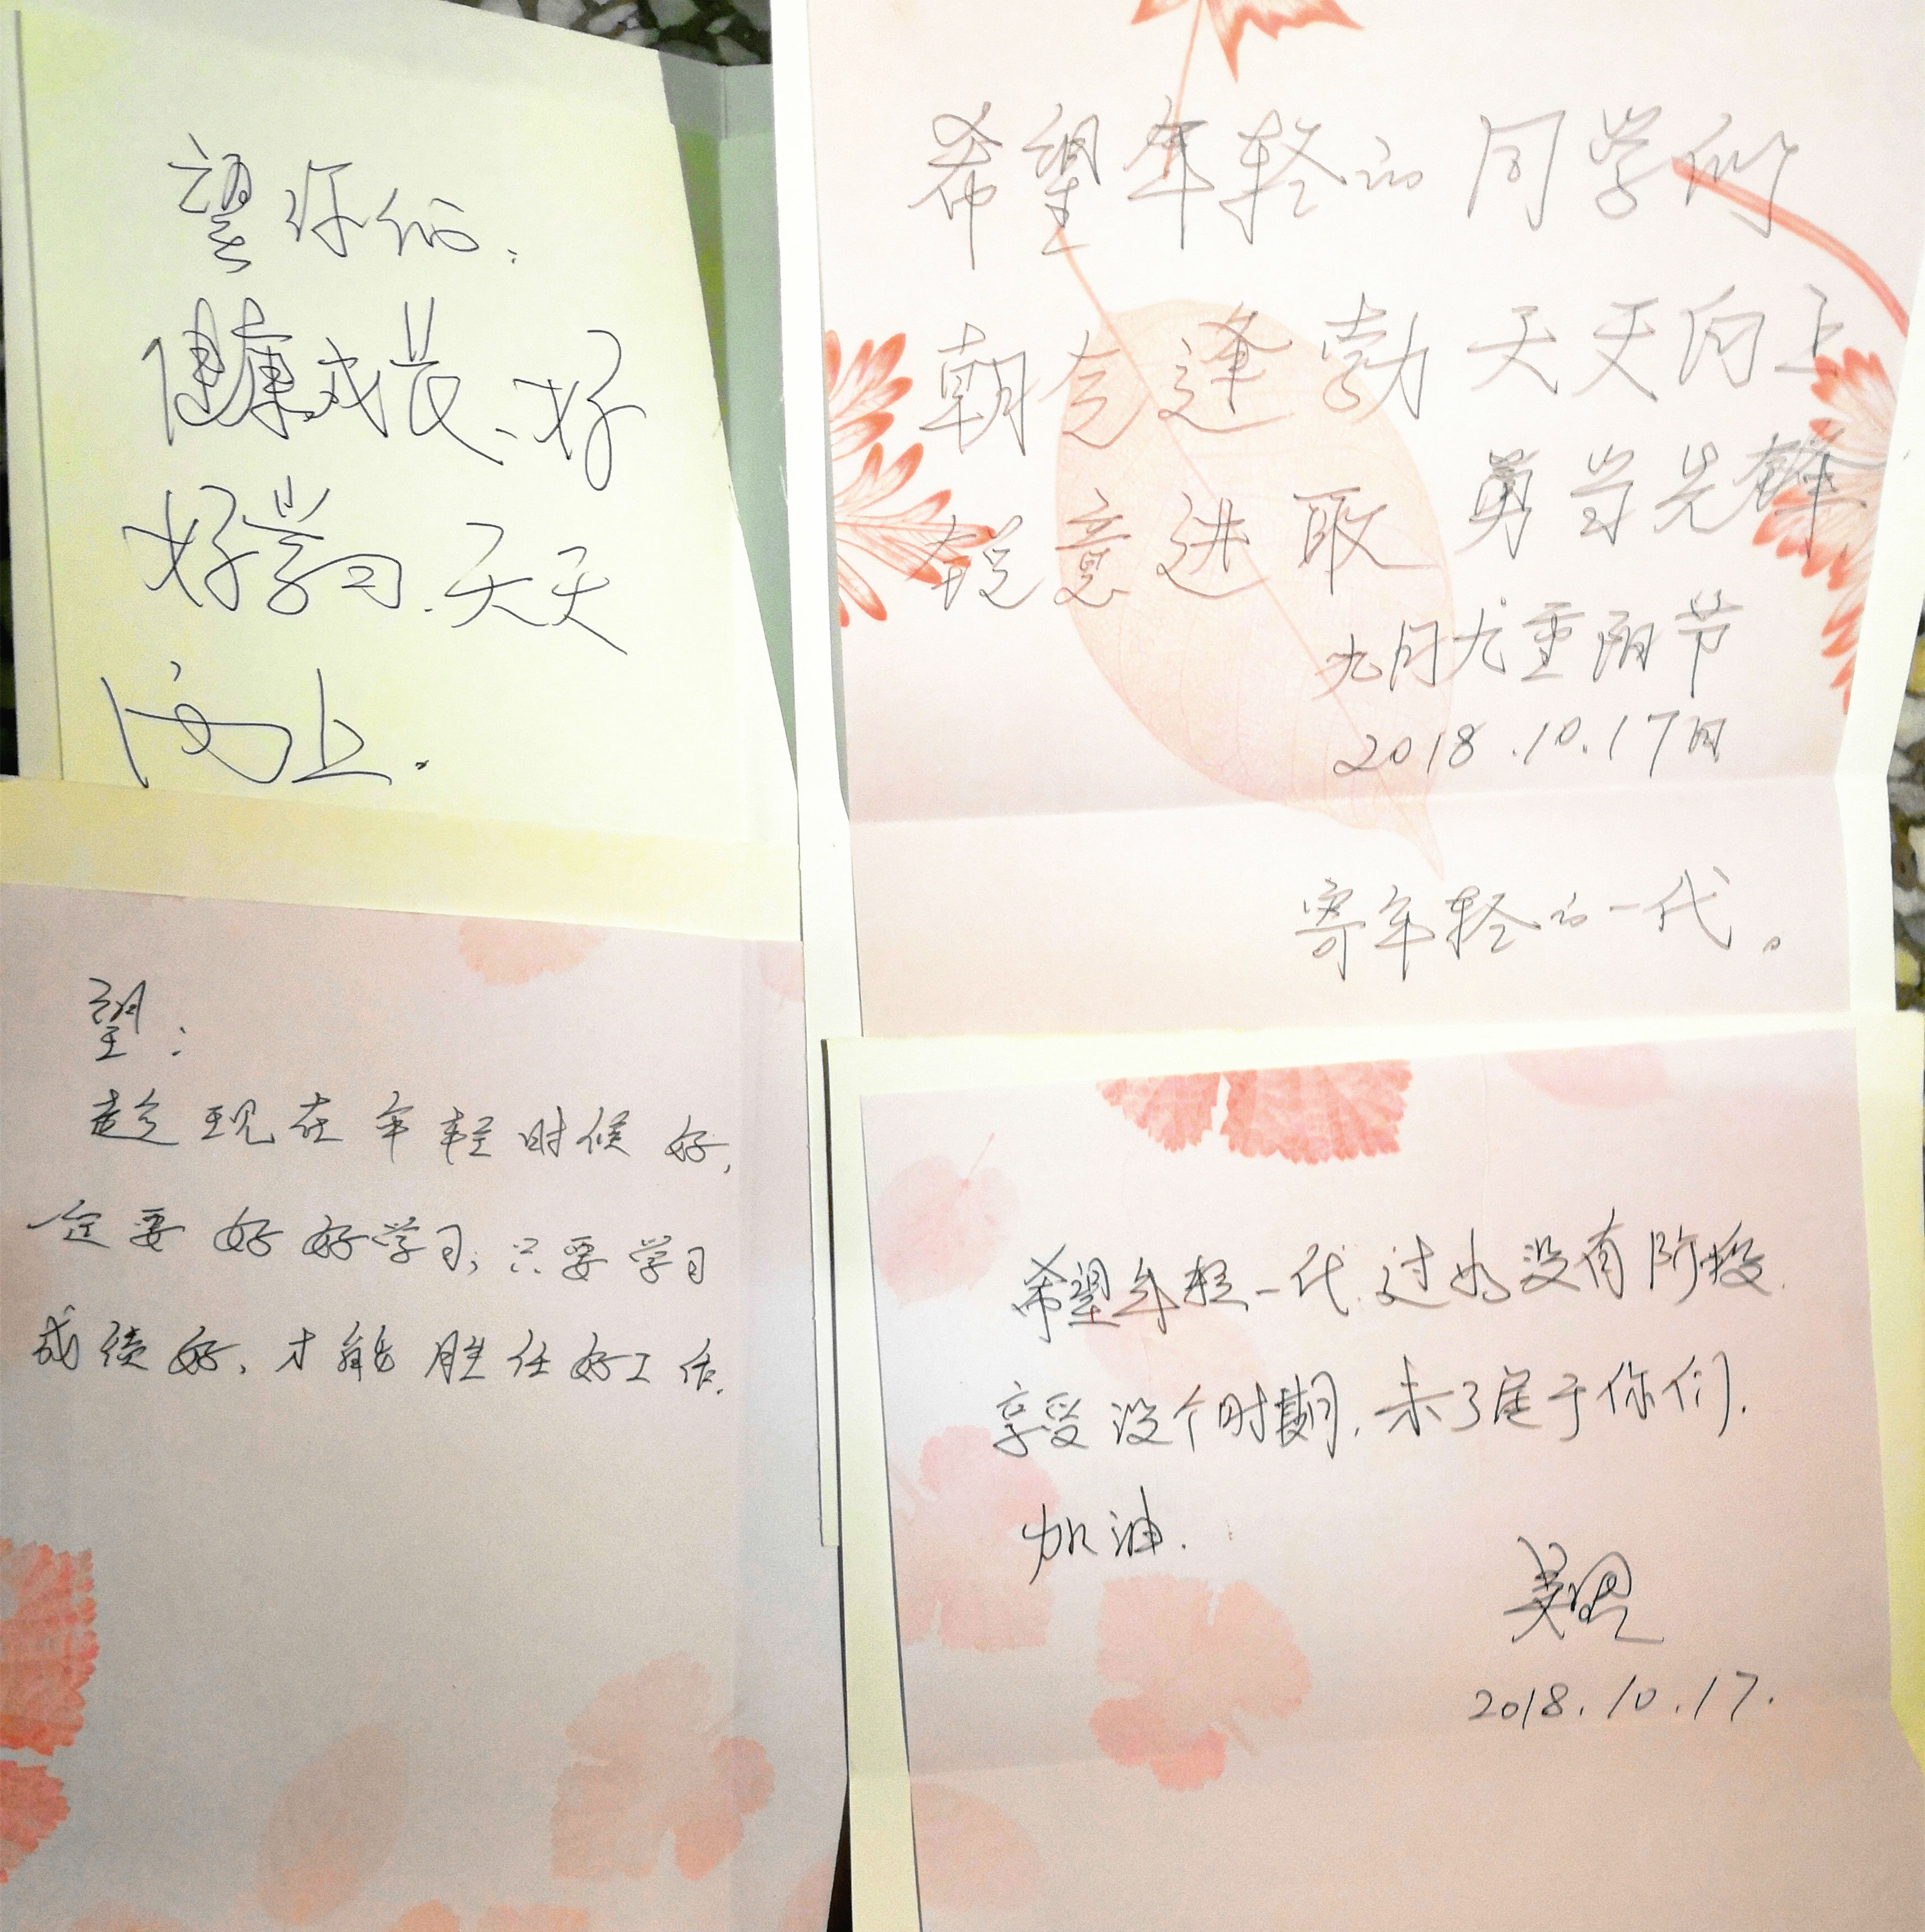 望你们：
健康成长、好
好学习.天天
向上.
希望年轻的同学们
朝气逢勃天天向上
锐意进取勇当先锋
九月九重阳节
2018.10.17日
寄年轻的一代。
望：
趁现在年轻时候好,
一定要好好学习；只要学习
成绩好,才能胜任好工作.
希望年轻一代.过好没有阶段.
享受这个时期,未了属于你们.
加油.
2018.10.17.